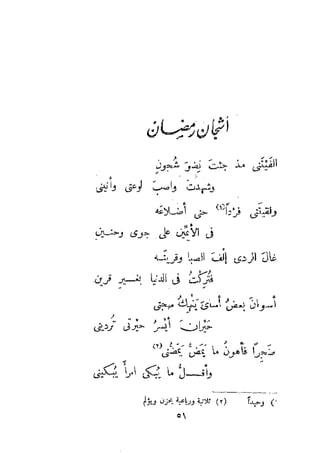 أشجان رمضان
ألفيتنى مذ جئت نِضوَ شُجونِ
وشهِدتَ واصبَ لوعتى وأنينى
ولقيتنى فردًا(١) حنى أضلاعَه
فى الأيِّمين على جوى وحنين
غال الردى إلف الصبا وقرينه
فتُركتُ فى الدنيا بغير قرين
أسوان بعضُ أساىَ يَنهِكُ مهجتى
حيران أيسرُ حيرتى تُردينى
ضجرًا فأهونُ ما يَمَضُّ يَمَضُّنى(٢)
وأقلُّ ما يُبكى امرأً يُبكينى
) وحيدًا (٢) ثلاثية ورباعية يحزن ويؤلم
٥١